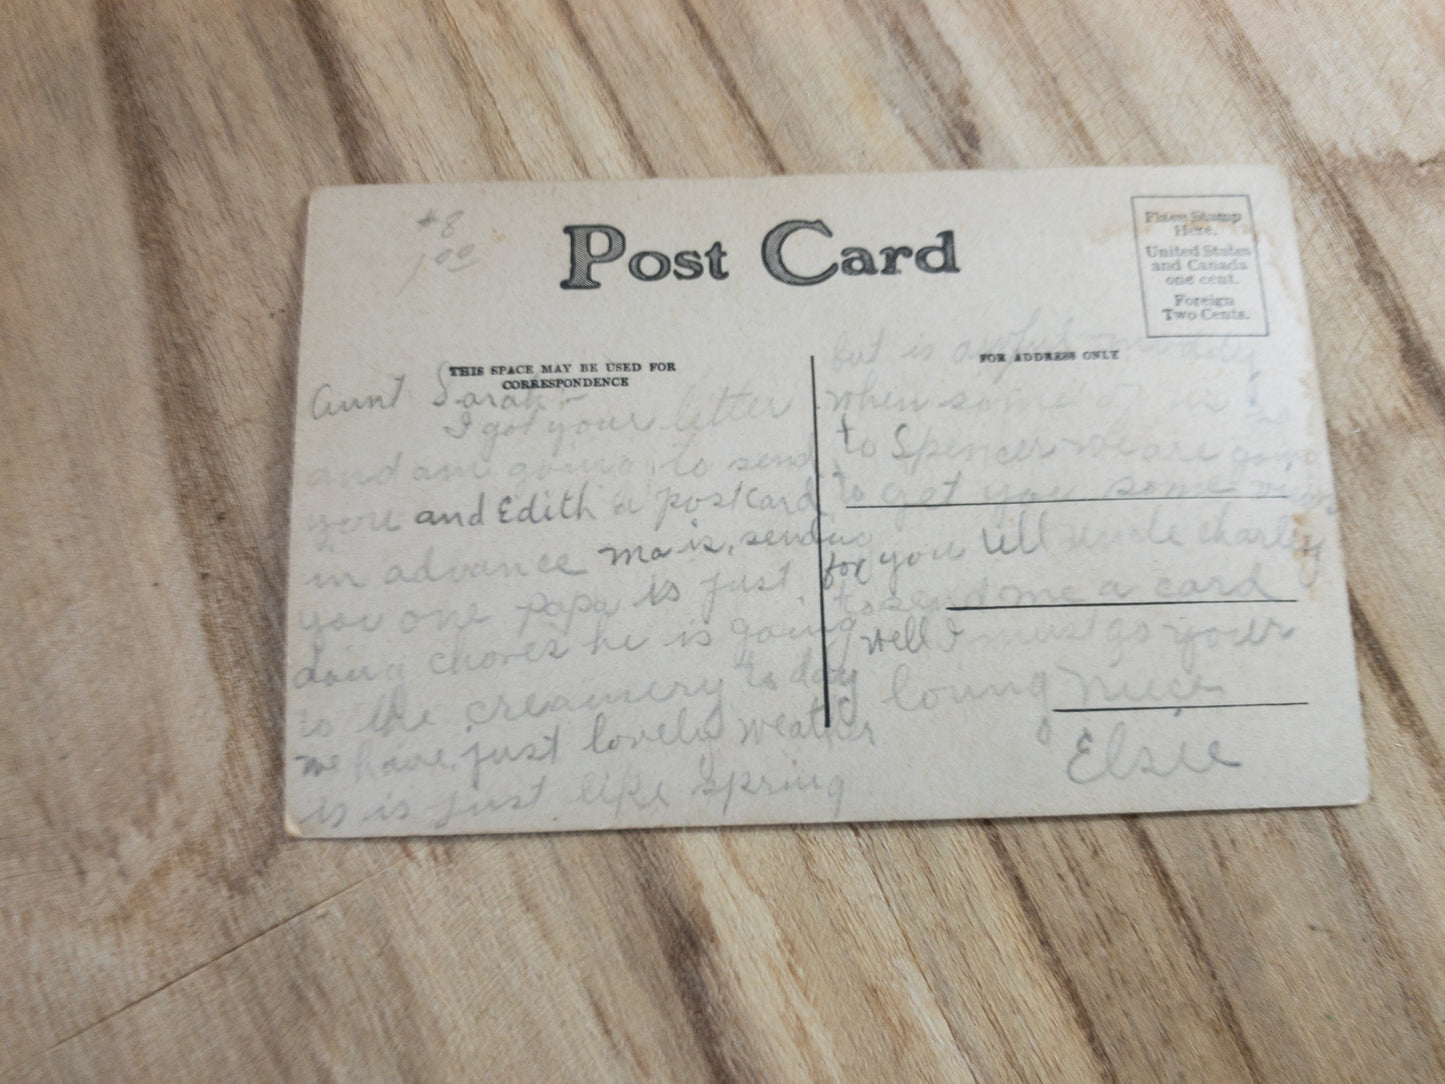 #8
1 00
Post Card
Place Stamp
Here.
United States
and Canada
one cent.
Foreign
Two Cents.
THIS SPACE MAY BE USED FOR
CORRESPONDENCE
FOR ADDRESS ONLY
Aunt Sarah
I got your letter
and am going to send
you and Edith a postcard
in advance ma is sending
you one papa is just
doing chores he is going
to the creamery to day
we have just lovely weather
is is just like spring
but is awful
when some of us
to Spencer we are going
to get you some
for you tell uncle charley
to send me a card
well I must go your
loving niece
Elsie